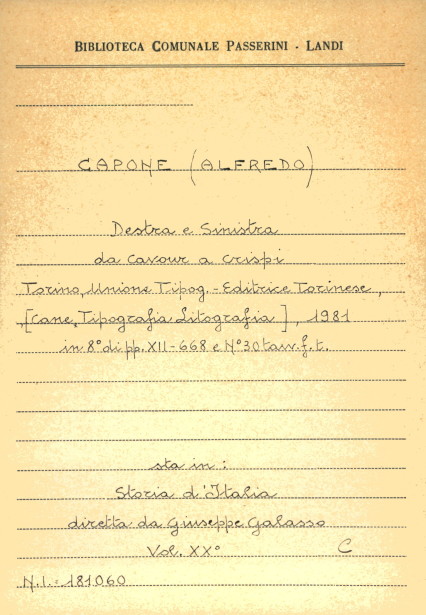 BIBLIOTECA COMUNALE PASSERINI - LANDI
CAPONE (ALFREDO)
Destra e Sinistra
da Cavour a Crispi
Torino, Unione Tipog. - Editrice Torinese,
[Cane, Tipografia Litografia], 1981
in 8° di pp. XII - 668 e N° 30 tavv. f. t.
sta in:
Storia d'Italia
diretta da Giuseppe Galasso
Vol. XX° C
N.I.: 181060